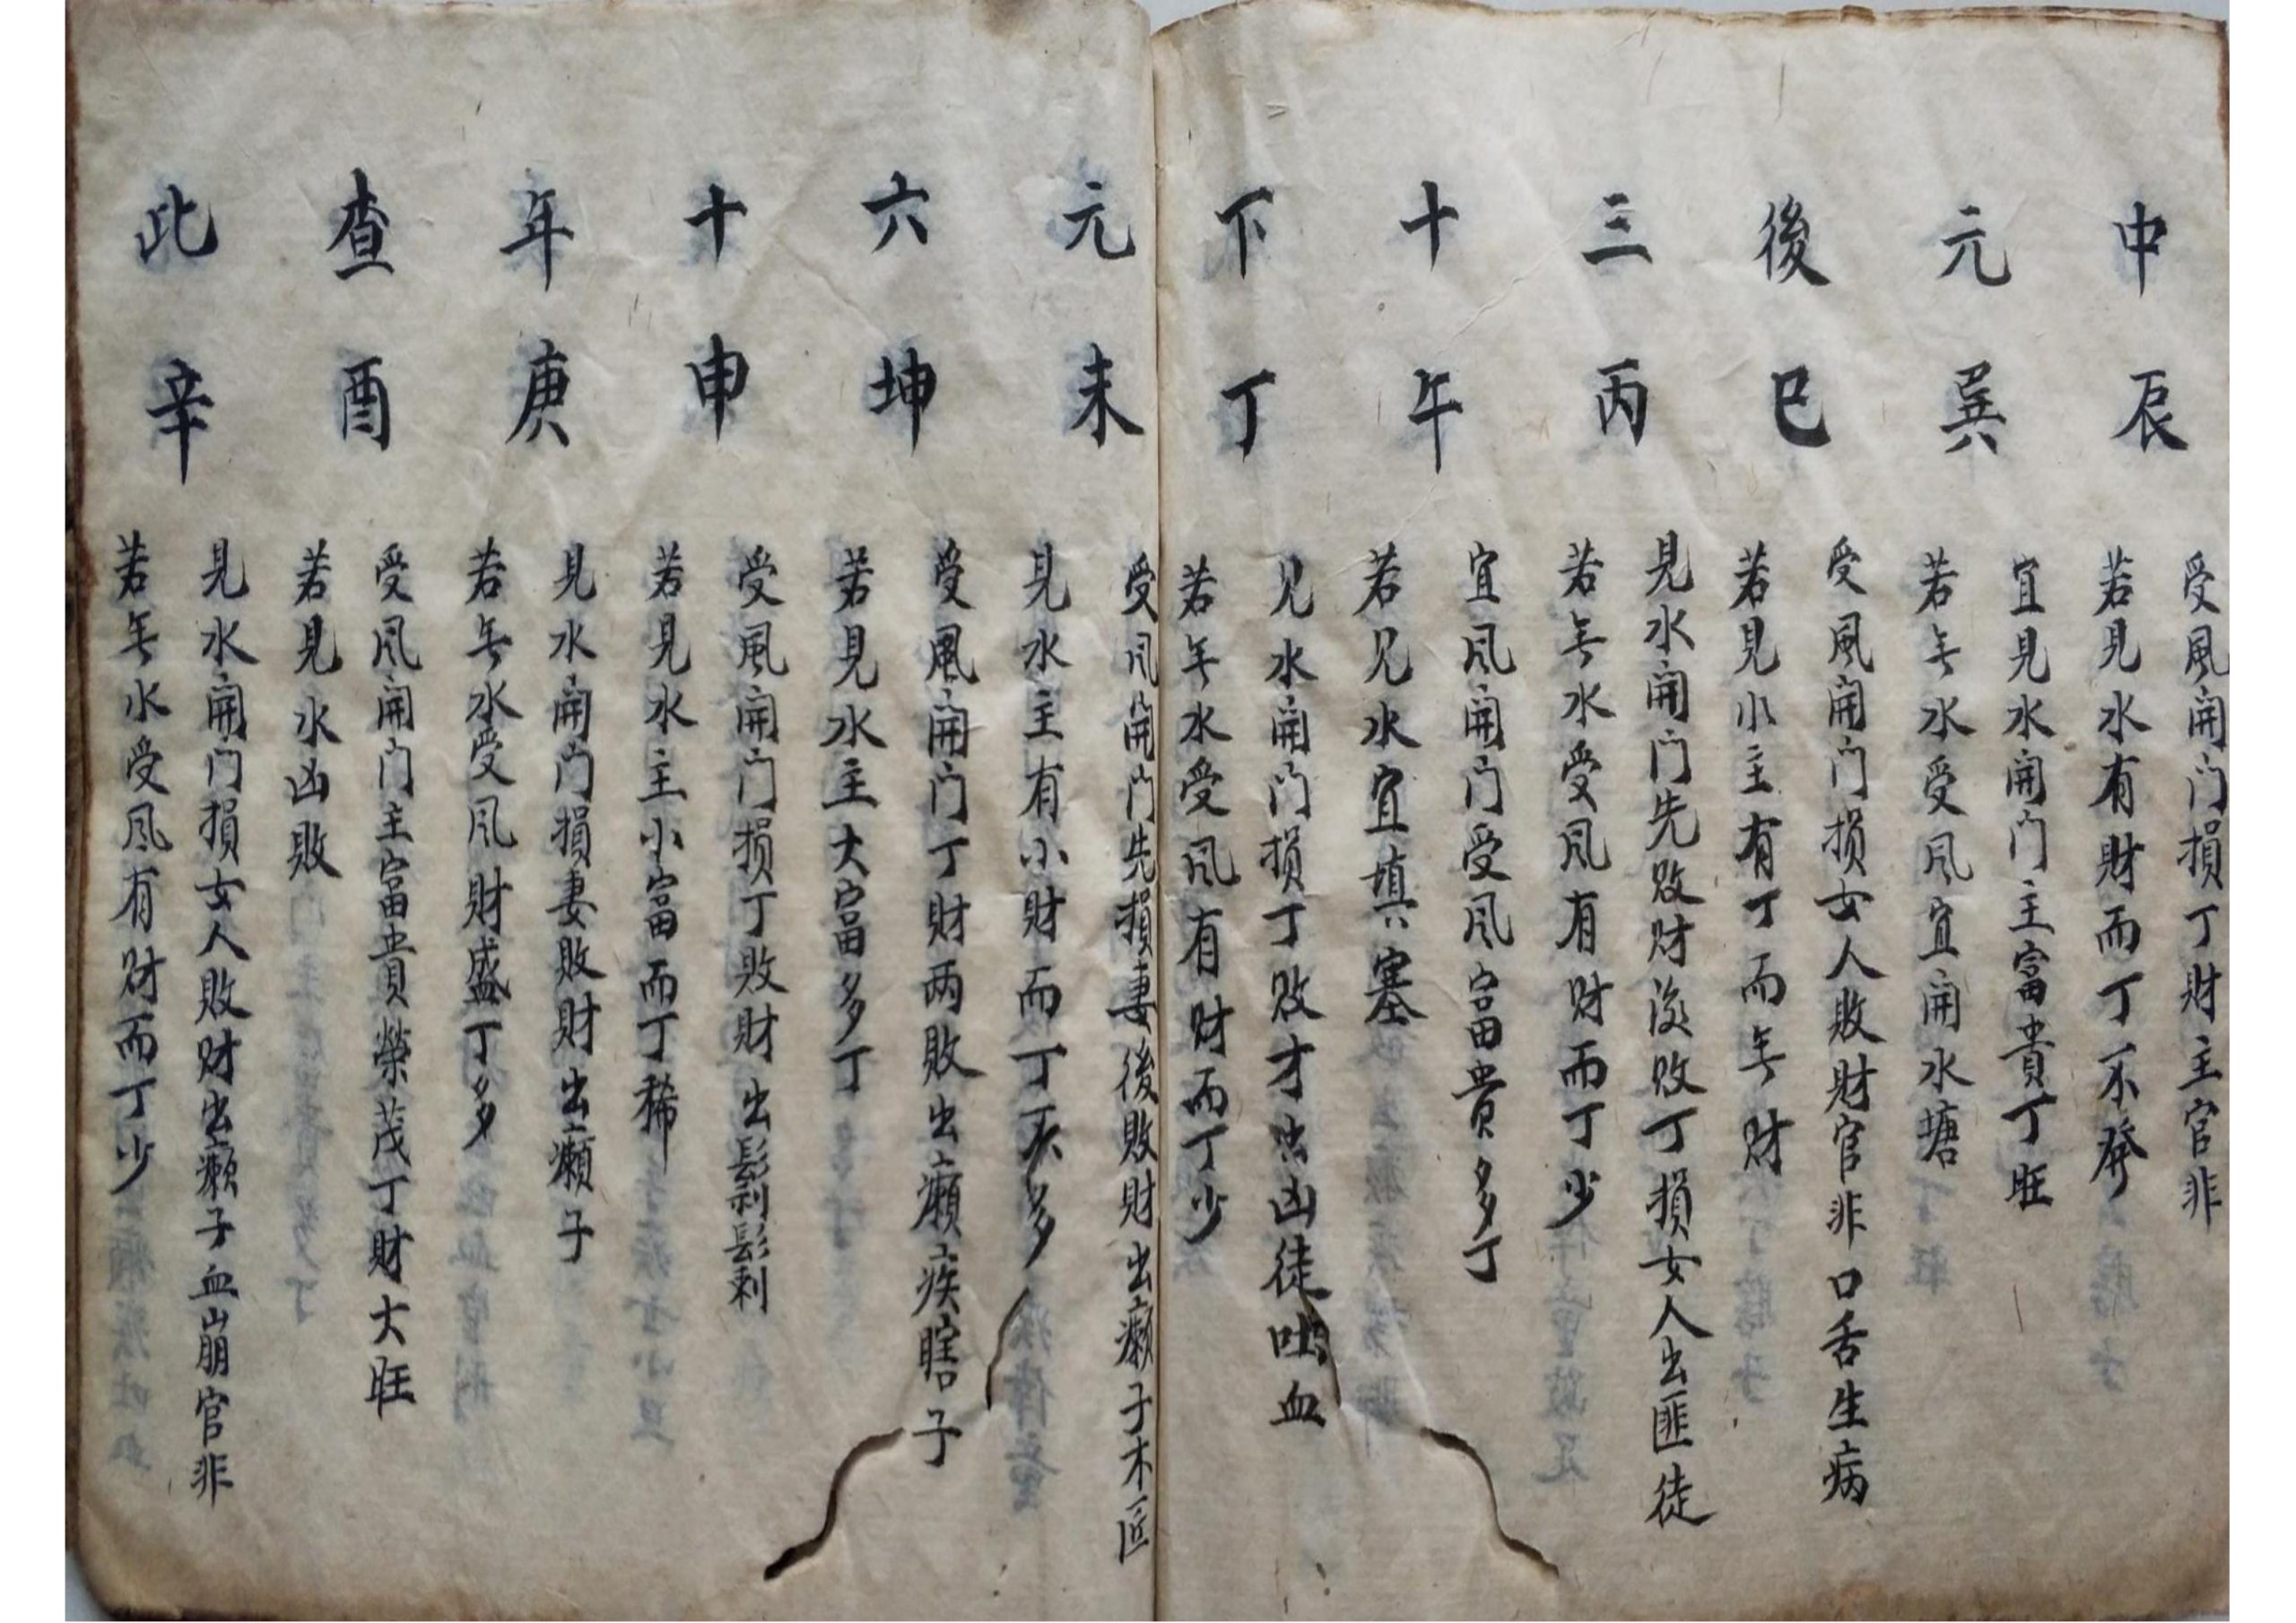 中
辰
受風開门損丁財主官非
若見水有財而丁不發
元
巽
宜見水開门主富貴丁旺
若无水受风宜開水塘
後
巳
受風開门損女人敗財官非口舌生病
若見水主有丁而无财
三
丙
見水開门先敗财後敗丁損女人出匪徒
若无水受风有财而丁少
十
午
宜风開门受风富贵多丁
若见水宜填塞
下
丁
见水開门損丁敗才出凶徒吐血
若无水受风有财而丁少
元
未
受风開门先損妻後敗財出癩子木匠
見水主有小財而丁不多
六
坤
受風開门丁財两敗出癩疾瞎子
若見水主大富多丁
十
申
受風開门損丁敗財出
若見水主小富而丁稀
年
庚
見水開门損妻敗財出癩子
若无水受风財盛丁多
查
酉
受风開门主富貴榮茂丁財大旺
若見水凶敗
此
辛
見水開门損女人敗财出癩子血崩官非
若无水受风有财而丁少